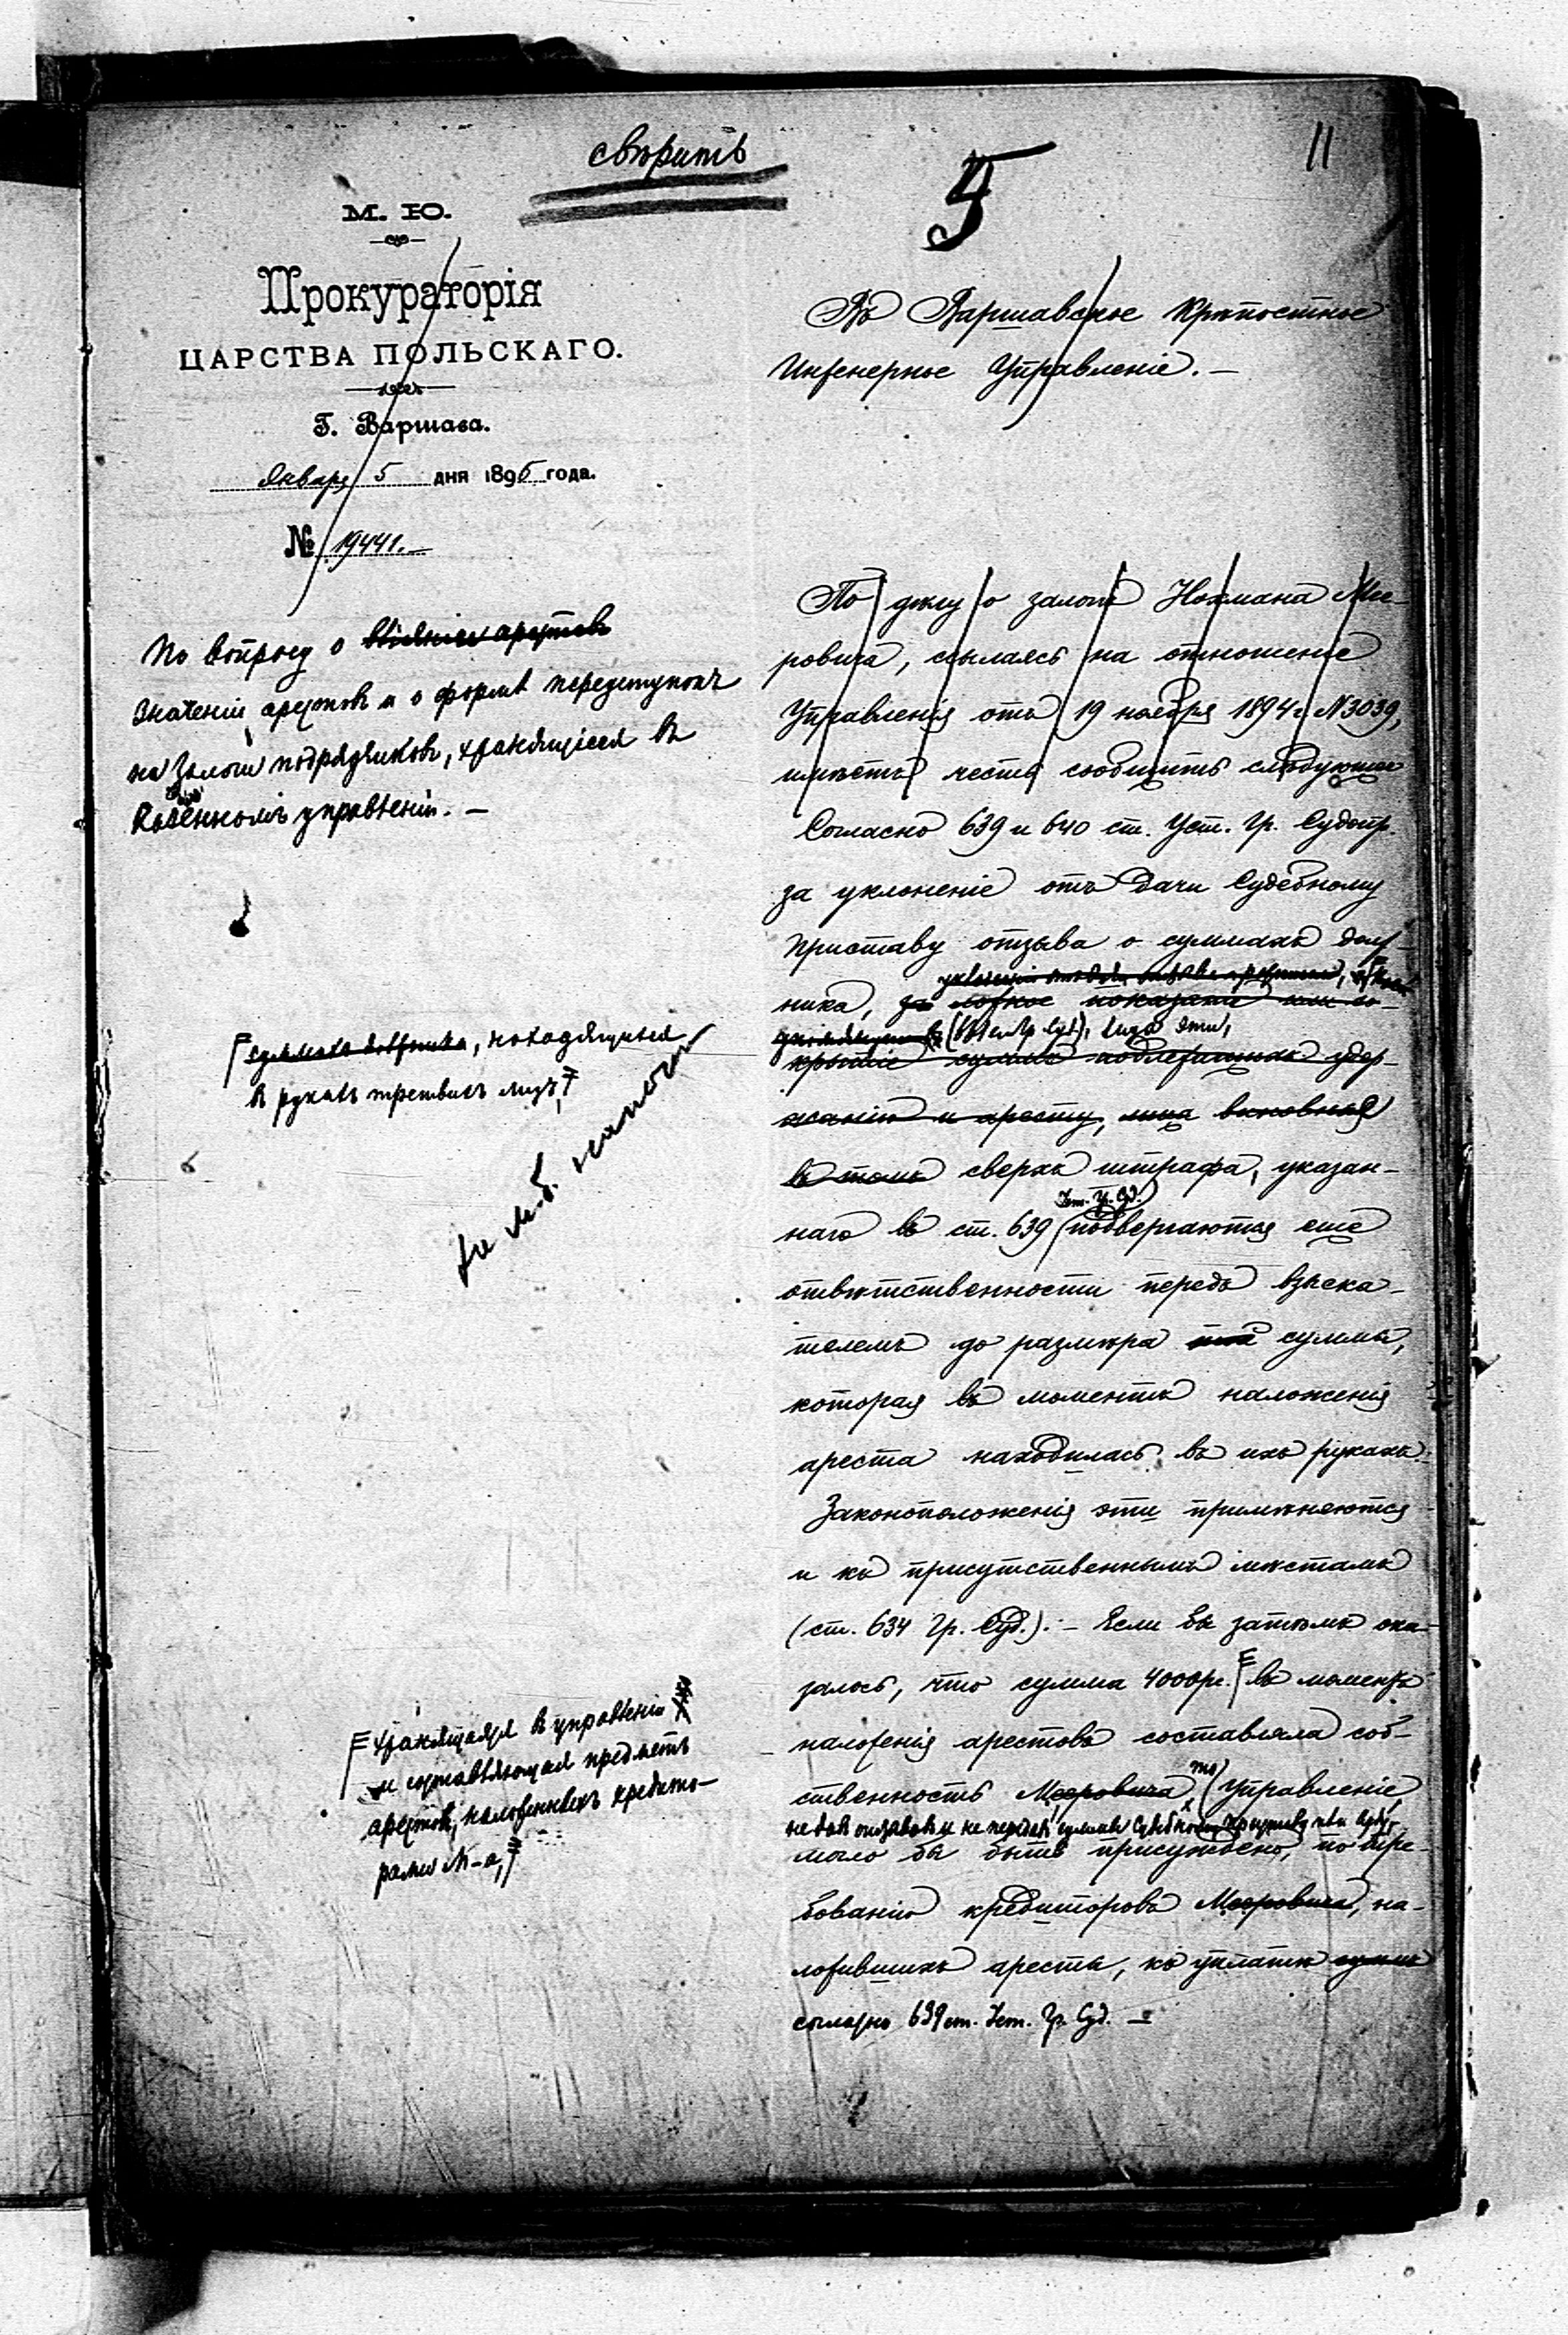 свѣрить
5
11
М. Ю.
Прокураторія
ЦАРСТВА ПОЛЬСКАГО.
Г. Варшава.
Январь 5 дня 1895 года.
№ 19441.
По вопросу о вліяніи арестовъ
значеніи арестовъ и о формѣ переуступокъ
на залоги подрядчиковъ, хранящіеся въ
Казенномъ управленіи. —
суммахъ должника, находящихся
въ рукахъ третьихъ лицъ,
хранящаяся въ управленіи
и составляющая предметъ
арестовъ, наложенныхъ кредито-
рами N-а,
Въ Варшавское Крѣпостное
Инженерное Управленіе. —
По дѣлу о залогѣ Нохмана Мее-
ровича, ссылаясь на отношеніе
Управленія отъ 19 ноября 1894 г. N 3039,
имѣетъ честь сообщить слѣдующее
Согласно 639 и 640 ст. Уст. Гр. Судопр.
за уклоненіе отъ дачи Судебному
Приставу отзыва о суммахъ долж-
ника, за ложное показаніе или со-
(Уст. Гр. Суд.), лица эти,
крытіе суммъ подлежащихъ удер-
жанію и аресту, лица виновныя
въ томъ сверхъ штрафа, указан-
Уст. Гр. Суд.
наго въ ст. 639 подвергаются еще
отвѣтственности передъ взыска-
телемъ до размѣра той суммы,
которая въ моментъ наложенія
ареста находилась въ ихъ рукахъ.
Законоположенія эти примѣняются
и къ присутственнымъ мѣстамъ
(ст. 634 Гр. Суд.). — Если бы затѣмъ ока-
залось, что сумма 4000 р. въ моментъ
наложенія арестовъ составляла соб-
ственность Мееровича, то Управленіе,
не давъ отзывовъ и не передавъ суммы Судебному Приставу
могло бы быть присуждено, по тре-
бованію кредиторовъ Мееровича, на-
ложившихъ аресты, къ уплатѣ суммъ
согласно 639 ст. Уст. Гр. Суд. —